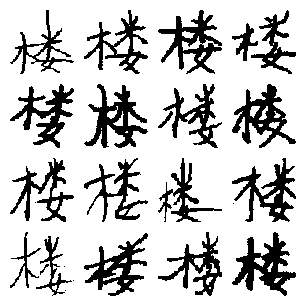 楼楼楼楼
楼楼楼楼
楼楼楼楼
楼楼楼楼